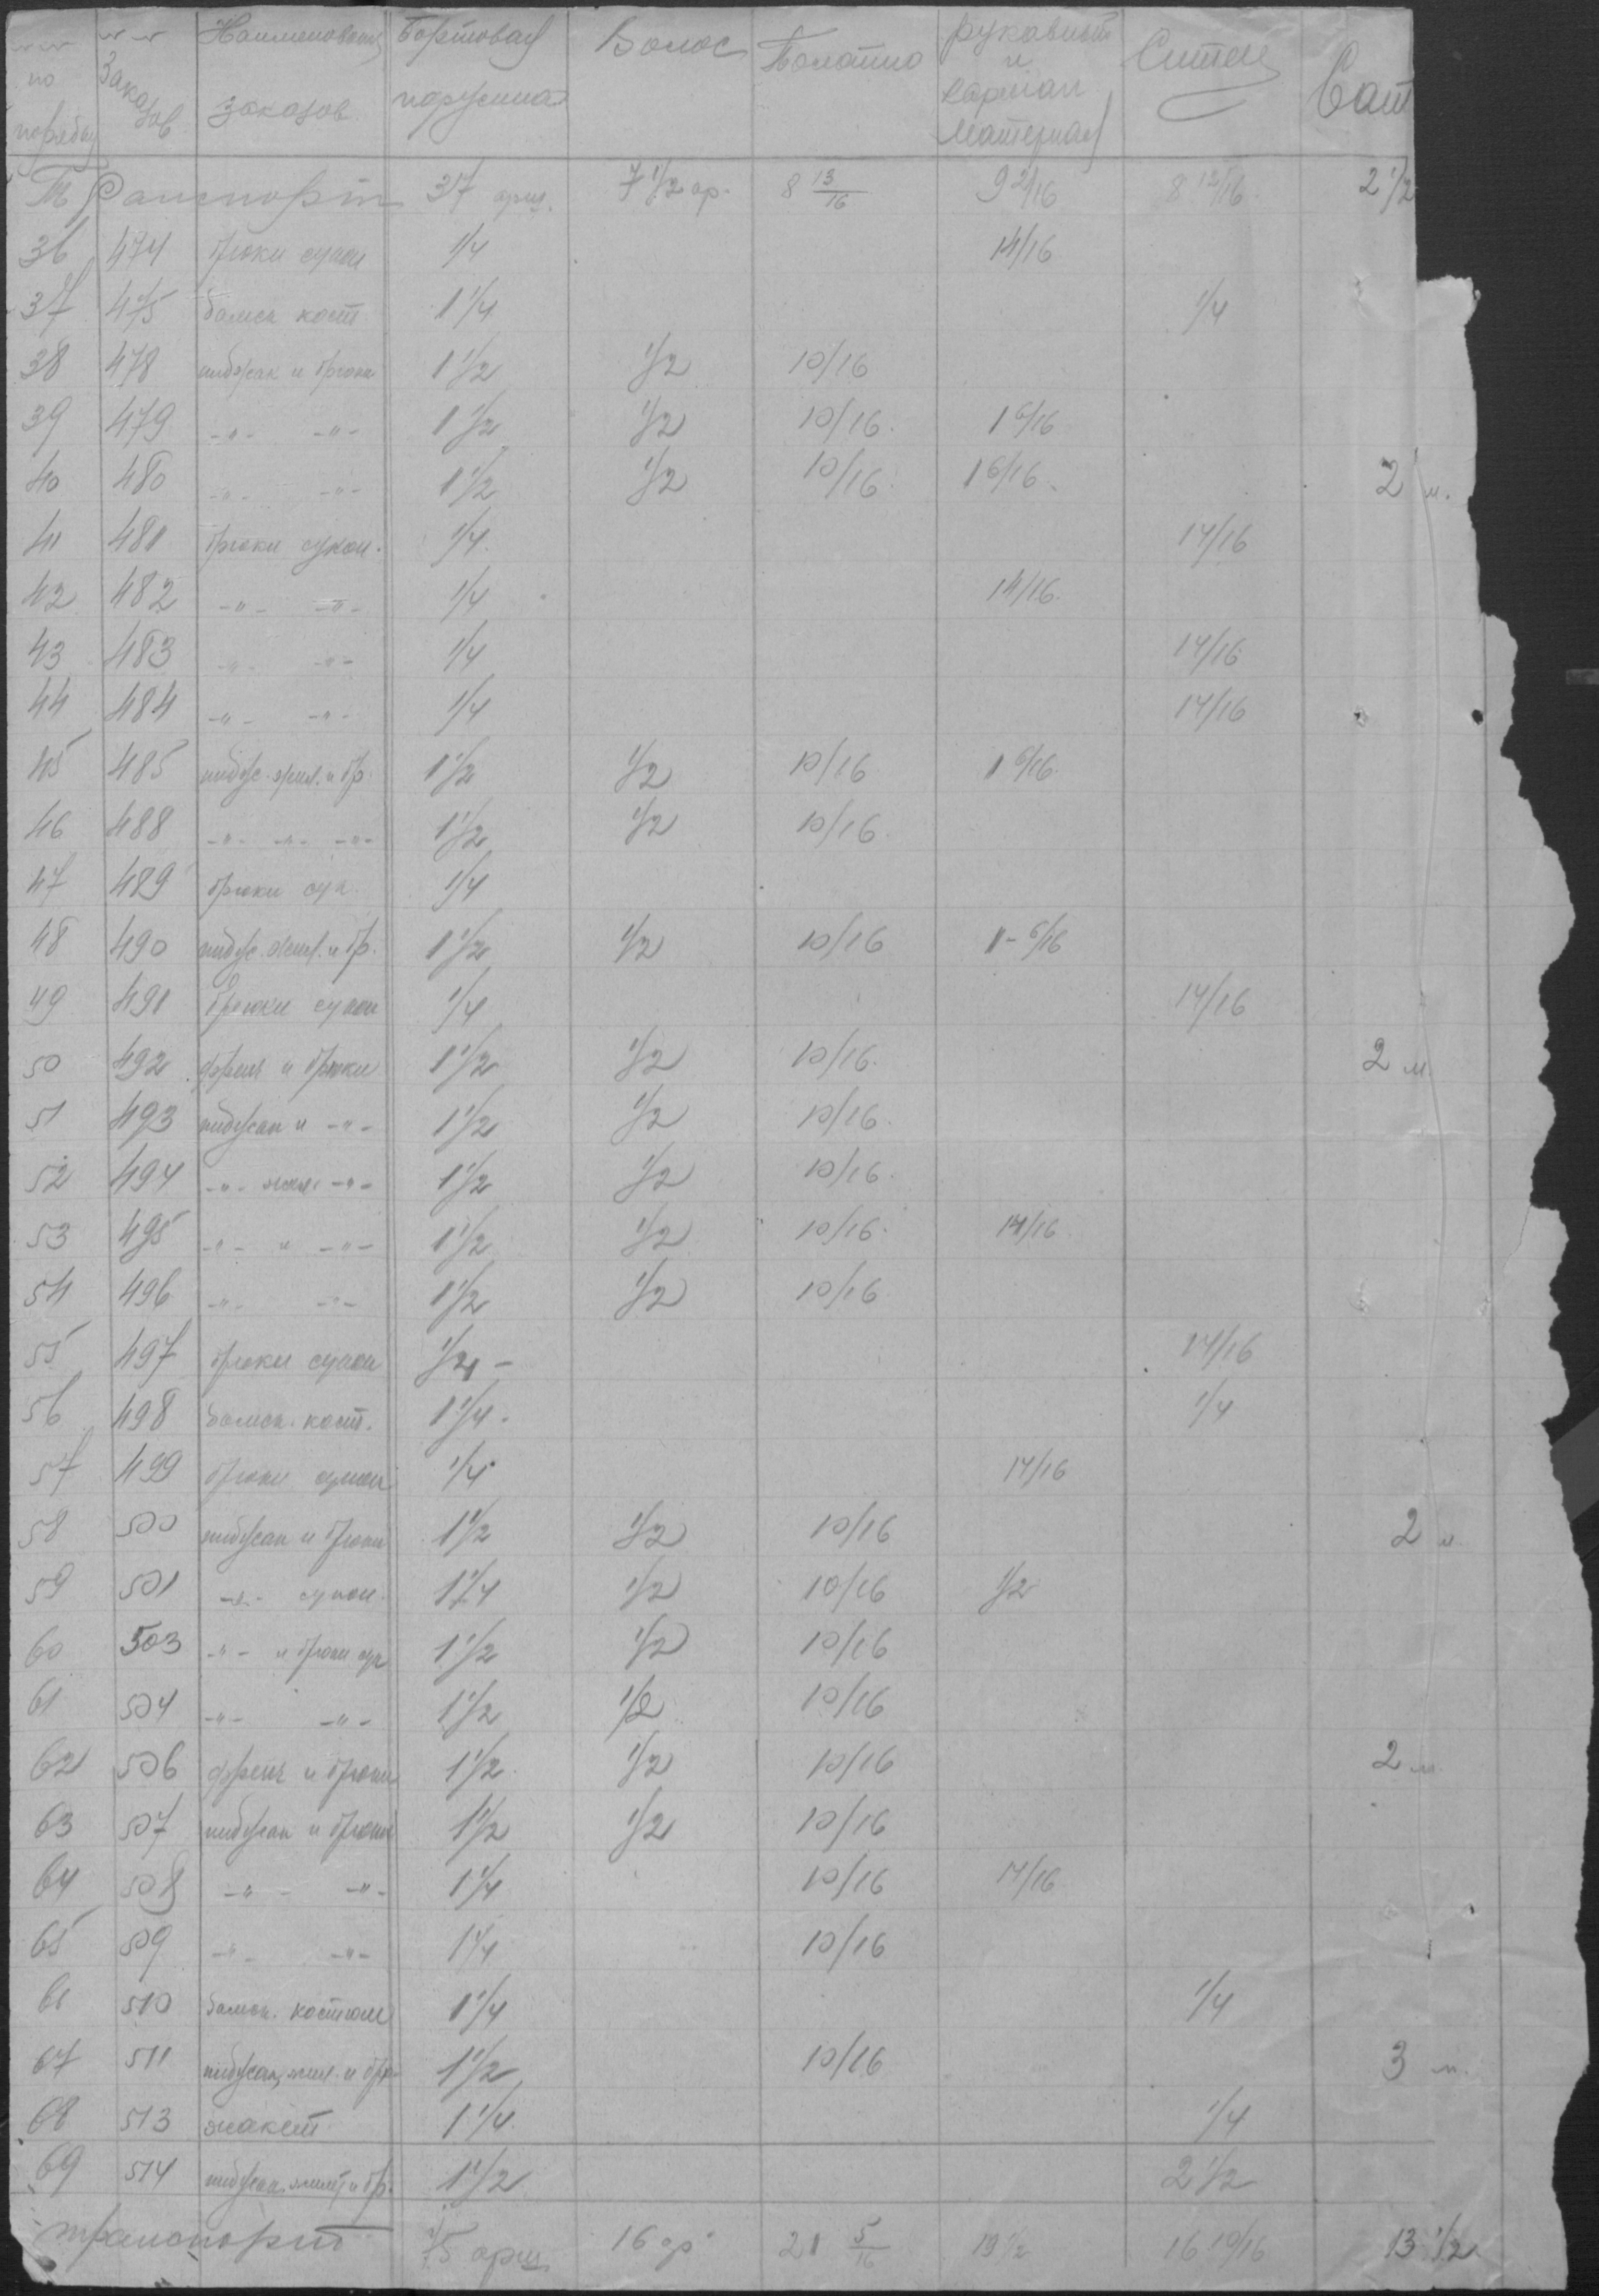 № № по порядку | № № Заказов | Наименован. заказов | Бортовая парусина | Волос | Полотно | Рукавный и карман материал | Ситец | Сат
Транспорт 37 арш. 7 1/2 ар. 8 13/16 9 2/16 8 12/16 2 1/2
36 474 брюки сукон 1/4 14/16
37 475 бамса кост 1 1/4 1/4
38 478 пиджак и брюки 1 1/2 1/2 10/16
39 479 -"- -"- 1 1/2 1/2 10/16 1 6/16
40 480 -"- -"- 1 1/2 1/2 10/16 1 6/16 2 м.
41 481 брюки сукон. 1/4 14/16
42 482 -"- -"- 1/4 14/16
43 483 -"- -"- 1/4 14/16
44 484 -"- -"- 1/4 14/16
45 485 пидж. жил. и бр. 1 1/2 1/2 10/16 1 6/16
46 488 -"- -"- -"- 1 1/2 1/2 10/16
47 489 брюки сук. 1/4
48 490 пидж. жил. и бр. 1 1/2 1/2 10/16 1 - 6/16
49 491 брюки сукон 1/4 14/16
50 492 френч и брюки 1 1/2 1/2 10/16 2 м
51 493 пиджак и -"- 1 1/2 1/2 10/16
52 494 -"- жил. -"- 1 1/2 1/2 10/16
53 495 -"- и -"- 1 1/2 1/2 10/16 14/16
54 496 -"- -"- 1 1/2 1/2 10/16
55 497 брюки сукон 1/4 - 14/16
56 498 бамса. кост. 1 1/4 1/4
57 499 брюки сукон 1/4 14/16
58 500 пиджак и брюки 1 1/2 1/2 10/16 2 м
59 501 -"- сукон. 1 1/4 1/2 10/16 1/2
60 503 -"- и брюки сук 1 1/2 1/2 10/16
61 504 -"- -"- 1 1/2 1/2 10/16
62 506 френч и брюки 1 1/2 1/2 10/16 2 м.
63 507 пиджак и брюки 1 1/2 1/2 10/16
64 508 -"- -"- 1 1/4 10/16 14/16
65 509 -"- -"- 1 1/4 10/16
66 510 бамса. костюм 1 1/4 1/4
67 511 пиджак, жил. и бр. 1 1/2 10/16 3 м.
68 513 жакет 1 1/4 1/4
69 514 пиджак, жилет и бр. 1 1/2 2 1/2
транспорт 75 арш 16 ар 21 5/16 19 1/2 16 10/16 13 1/2